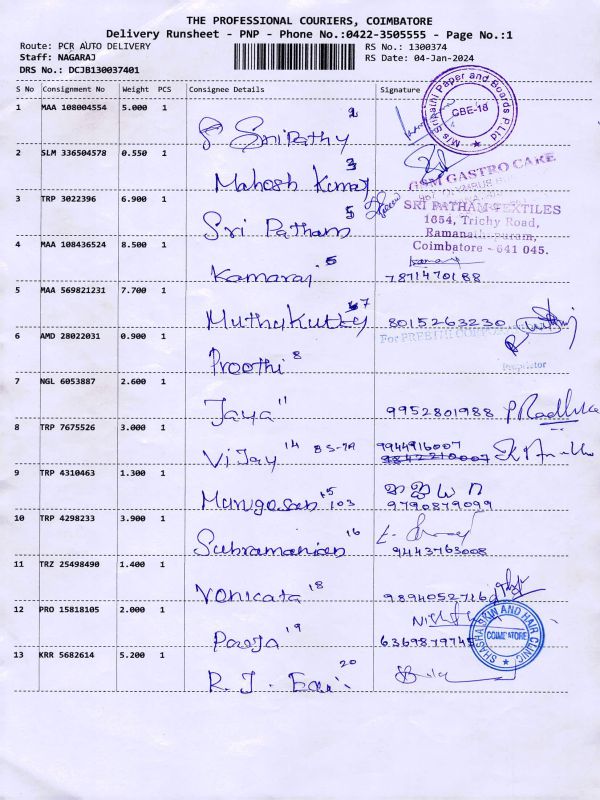 THE PROFESSIONAL COURIERS, COIMBATORE
Delivery Runsheet - PNP - Phone No.:0422-3505555 - Page No.:1
Route: PCR AUTO DELIVERY RS No.: 1300374
Staff: NAGARAJ RS Date: 04-Jan-2024
DRS No.: DCJB130037401
S No Consignment No Weight PCS Consignee Details Signature
1 MAA 108004554 5.000 1
2
M/s Sripathi Paper and Boards P Ltd
CBE-18
P Sripathy
2 SLM 336504578 0.550 1
3
Mahesh Kumar
GSM GASTRO CARE
3 TRP 3022396 6.900 1
5
Sri Pathams
SRI PATHAM TEXTILES
1654, Trichy Road,
Ramanathapuram,
Coimbatore - 641 045.
4 MAA 108436524 8.500 1
6
Kamaraj 7871470188
5 MAA 569821231 7.700 1
7
Muthukutty 8015263230
6 AMD 28022031 0.900 1
For PREETHI
Preethi 8
Proprietor
7 NGL 6053887 2.600 1
Jaya 11 9952801988 P Radhika
8 TRP 7675526 3.000 1
Vijay 14 9944916007
9842210007
9 TRP 4310463 1.300 1
Murugesan 15 103
9790879099
10 TRP 4298233 3.900 1
Subramanian 16
9443763008
11 TRZ 25498490 1.400 1
Venkata 18 9894052716
12 PRO 15818105 2.000 1
Pooja 19 6369879745
SKIN AND HAIR CLINIC
COIMBATORE
13 KRR 5682614 5.200 1
20
R. J.